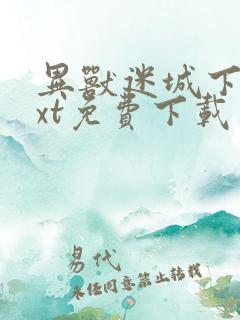 異獸迷城下
xt免費下載
易代
未经同意禁止转载